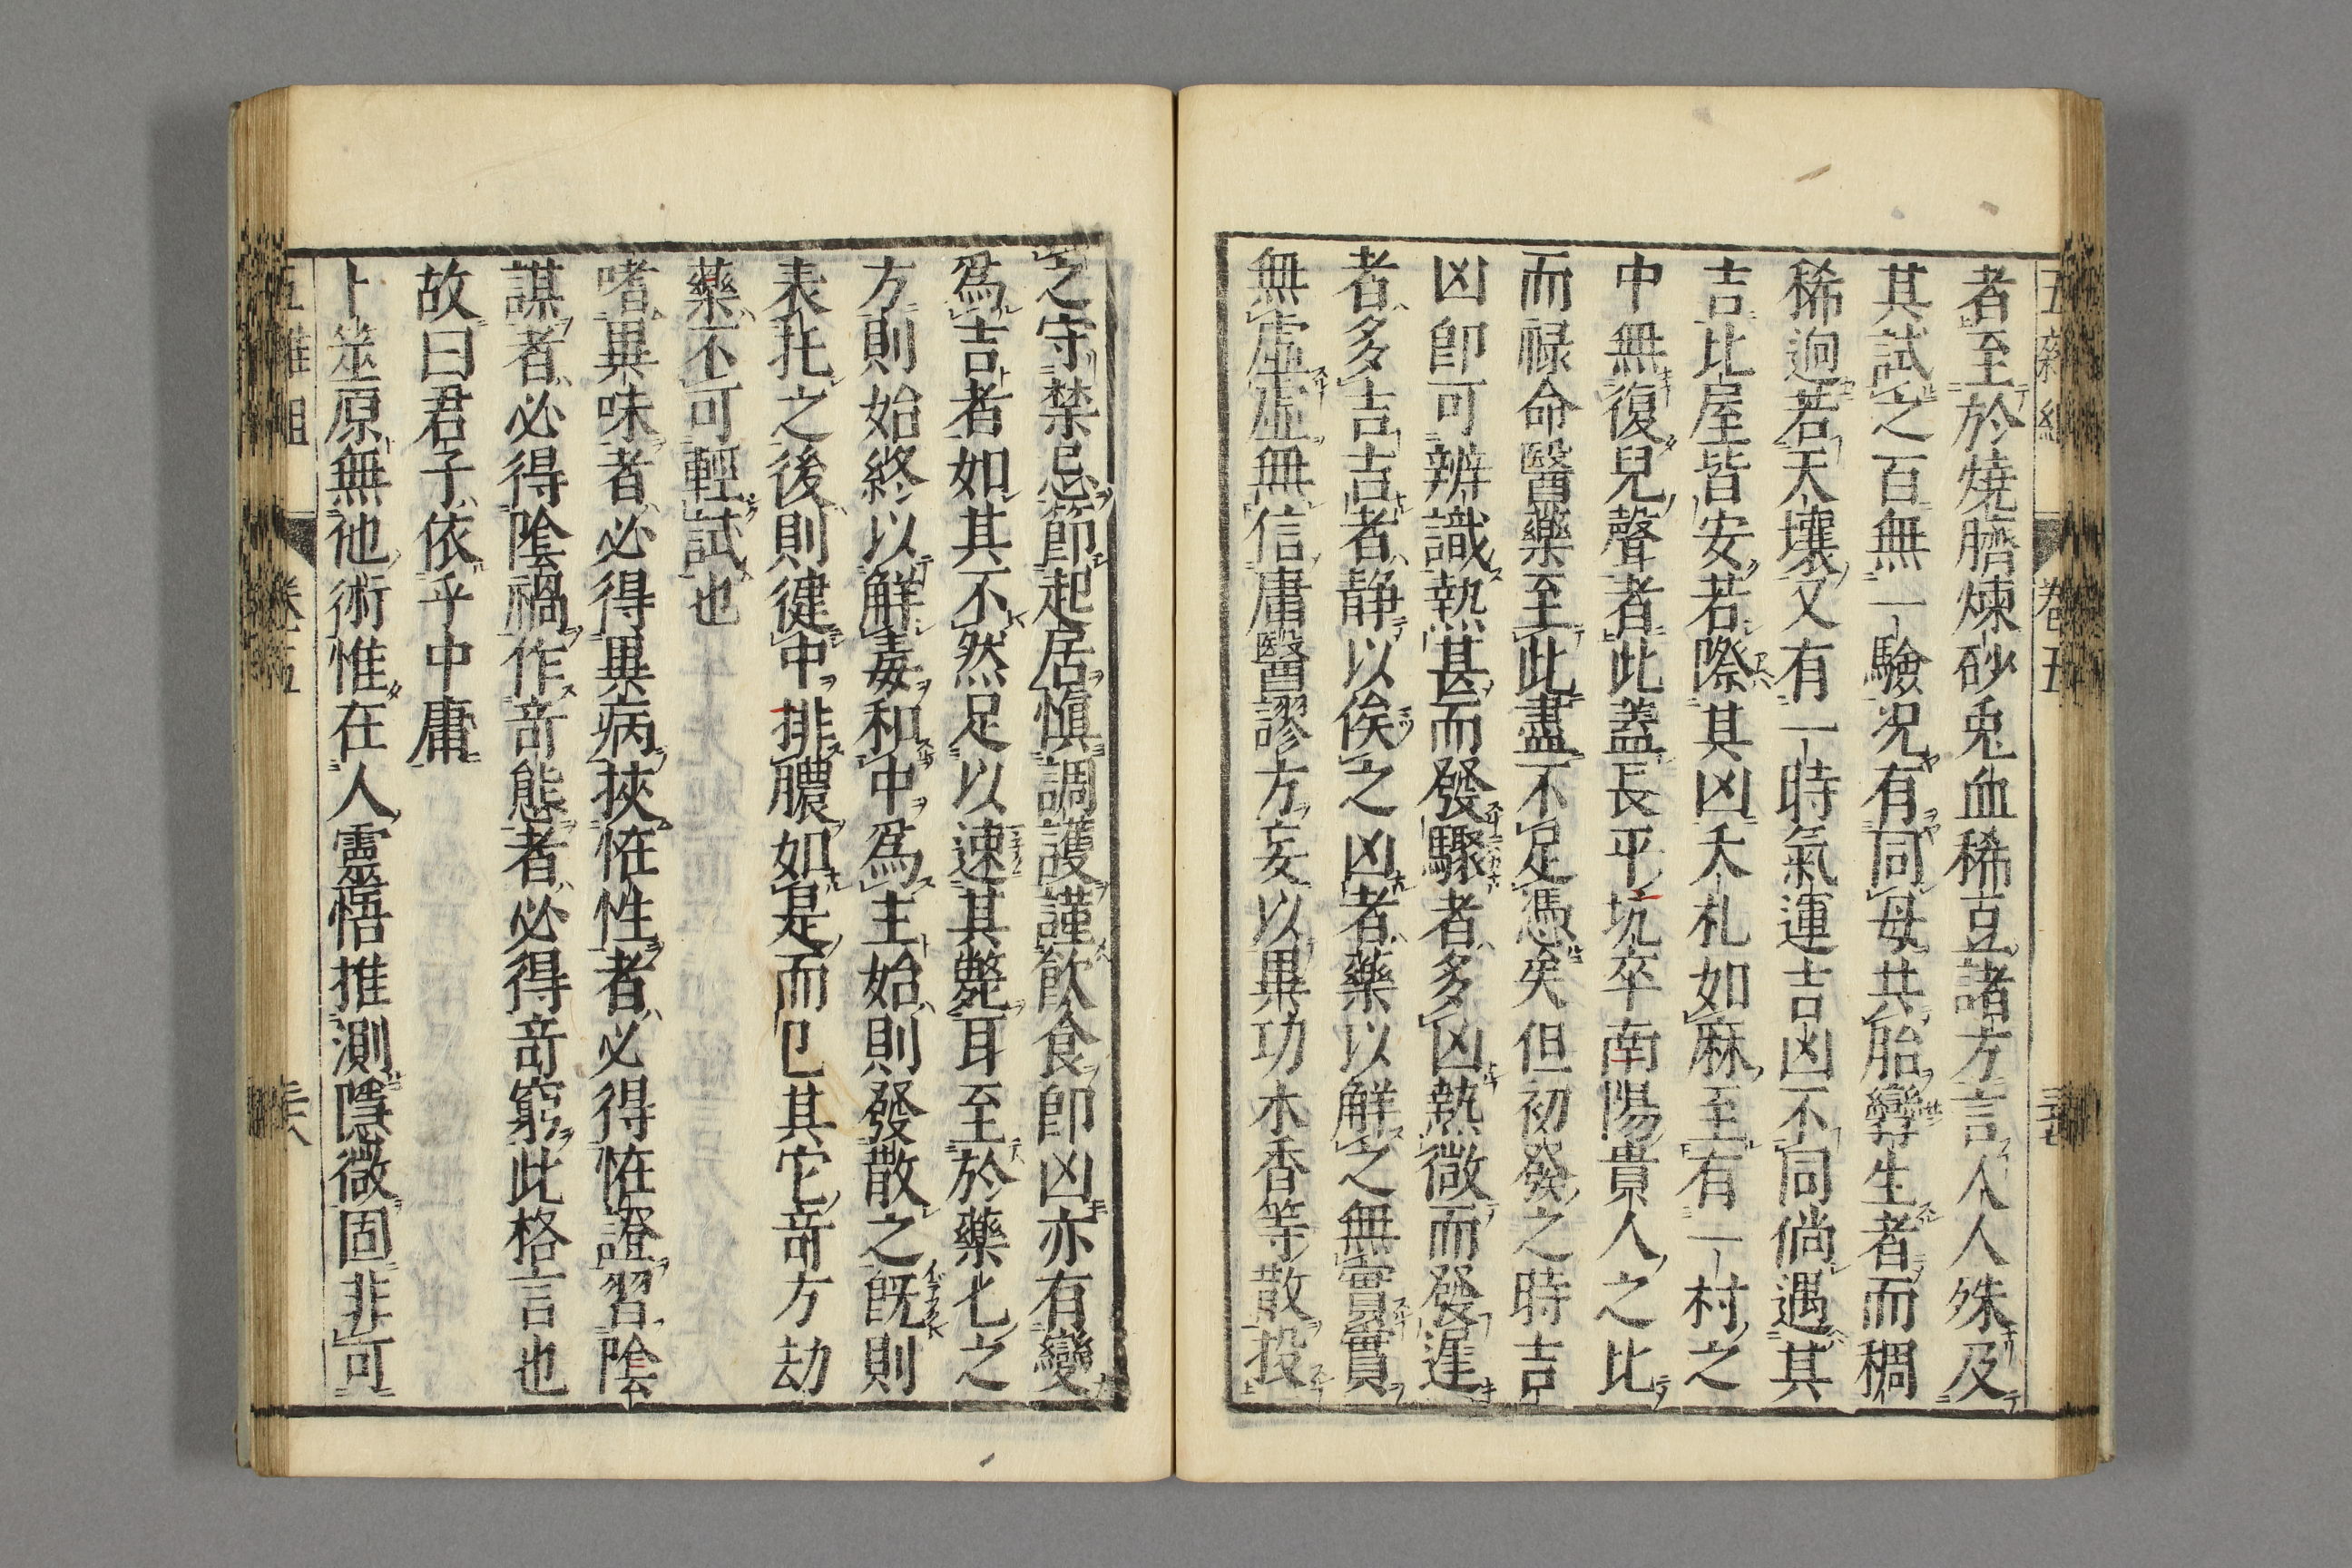 五雜組 卷五
者至於燒臍煉砂兎血稀豆諸方言人人殊及
其試之百無一驗况有同母共胎孿生者而稠
稀逈若天壤又有一時氣運吉凶不同倘遇其
吉比屋皆安若際其凶夭札如麻至有一村之
中無復兒聲者此蓋長平坑卒南陽貴人之比
而祿命醫藥至此盡不足憑矣但初發之時吉
凶卽可辨識熱甚而發驟者多凶熱微而發遲
者多吉吉者靜以俟之凶者藥以解之無實實
無虛虛無信庸醫謬方妄以異功木香等散投
之守禁忌節起居愼調護謹飮食卽凶亦有變
爲吉者如其不然足以速其斃耳至於藥七之
方則始終以解毒和中爲主始則發散之旣則
表托之後則徤中排膿如是而已其它竒方劫
藥不可輕試也
嗜異味者必得異病挾恠性者必得恠證習陰
謀者必得陰禍作竒態者必得竒窮此格言也
故曰君子依乎中庸
卜筮原無他術惟在人靈悟推測隱微固非可
五雜組 卷五 三六